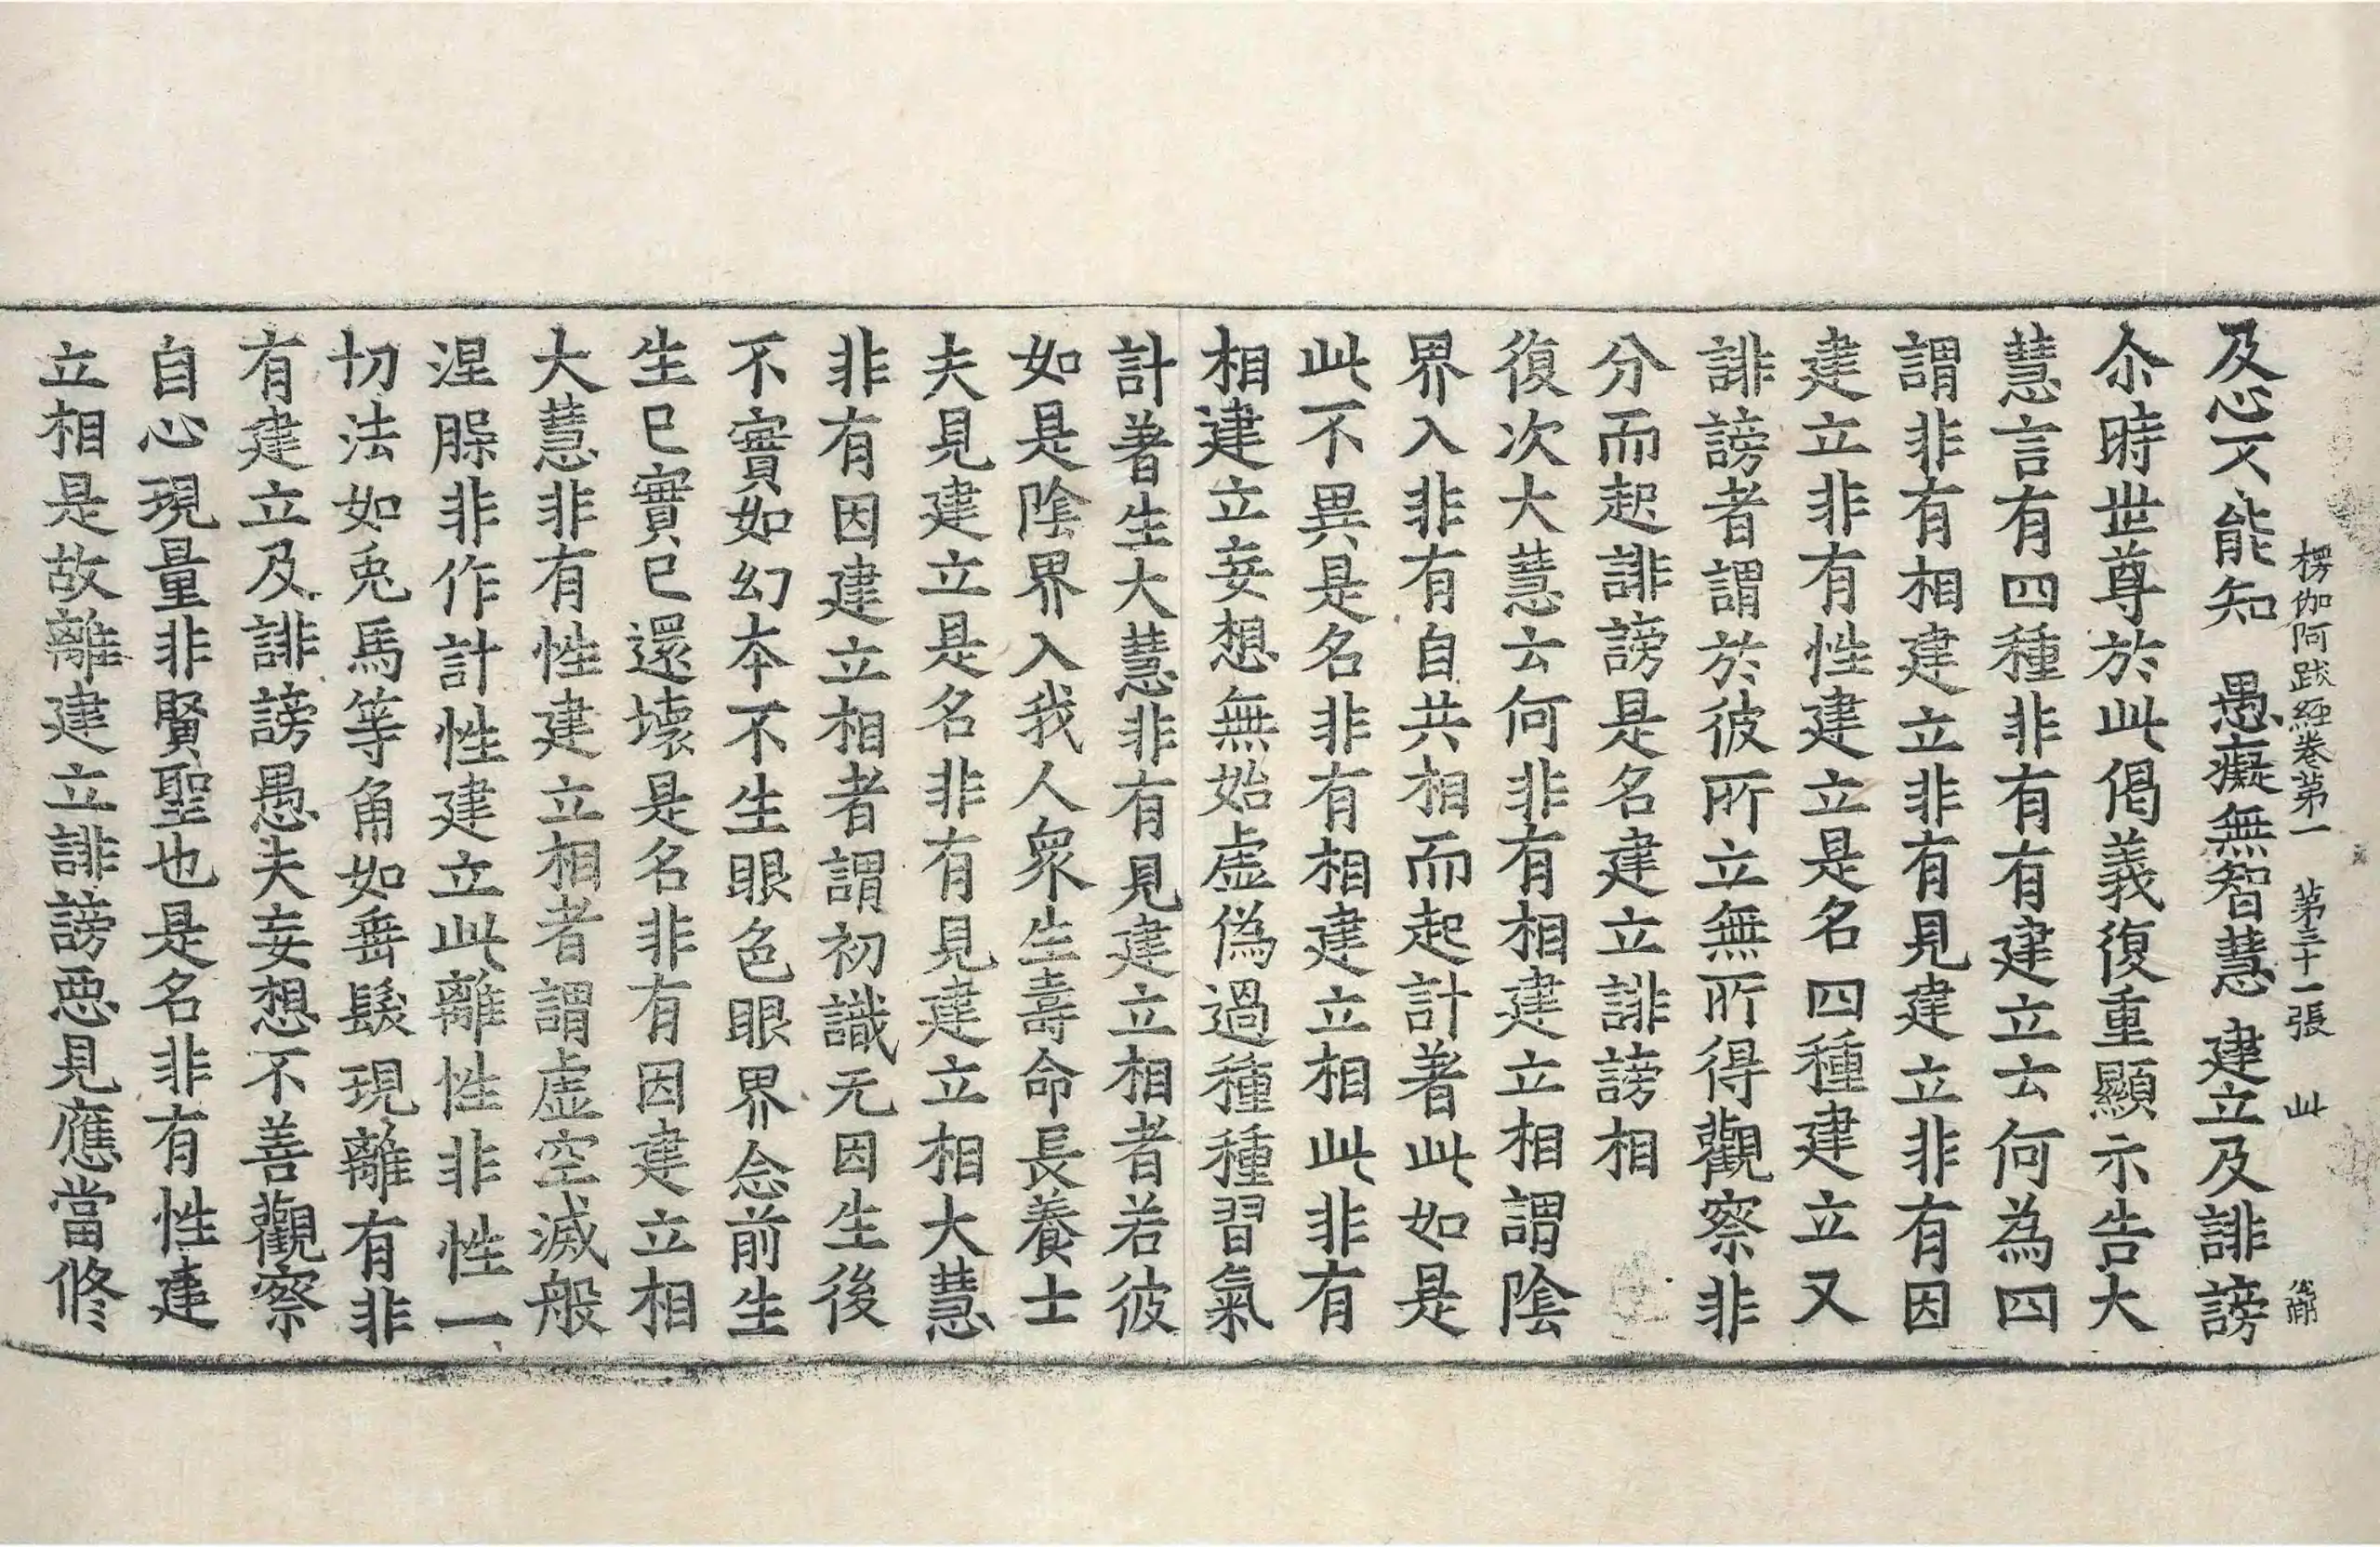 楞伽阿跋經卷第一　第三十一張　此
及心不能知　愚癡無智慧　建立及誹謗
尒時世尊於此偈義復重顯示告大
慧言有四種非有有建立云何為四
謂非有相建立非有見建立非有因
建立非有性建立是名四種建立又
誹謗者謂於彼所立無所得觀察非
分而起誹謗是名建立誹謗相
復次大慧云何非有相建立相謂陰
界入非有自共相而起計著此如是
此不異是名非有相建立相此非有
相建立妄想無始虛偽過種種習氣
計著生大慧非有見建立相者若彼
如是陰界入我人衆生壽命長養士
夫見建立是名非有見建立相大慧
非有因建立相者謂初識无因生後
不實如幻本不生眼色眼界念前生
生已實已還壞是名非有因建立相
大慧非有性建立相者謂虛空滅般
涅槃非作計性建立此離性非性一
切法如兎馬等角如垂髮現離有非
有建立及誹謗愚夫妄想不善觀察
自心現量非賢聖也是名非有性建
立相是故離建立誹謗惡見應當修